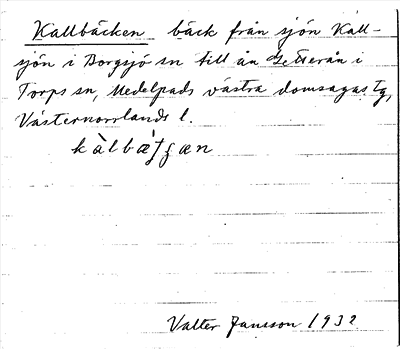 Kallbäcken bäck från sjön Kall-
sjön i Borgsjö sn till ån Getterån i
Torps sn, Medelpads västra domsagas tg,
Västernorrlands l.
Valter Jansson 1932